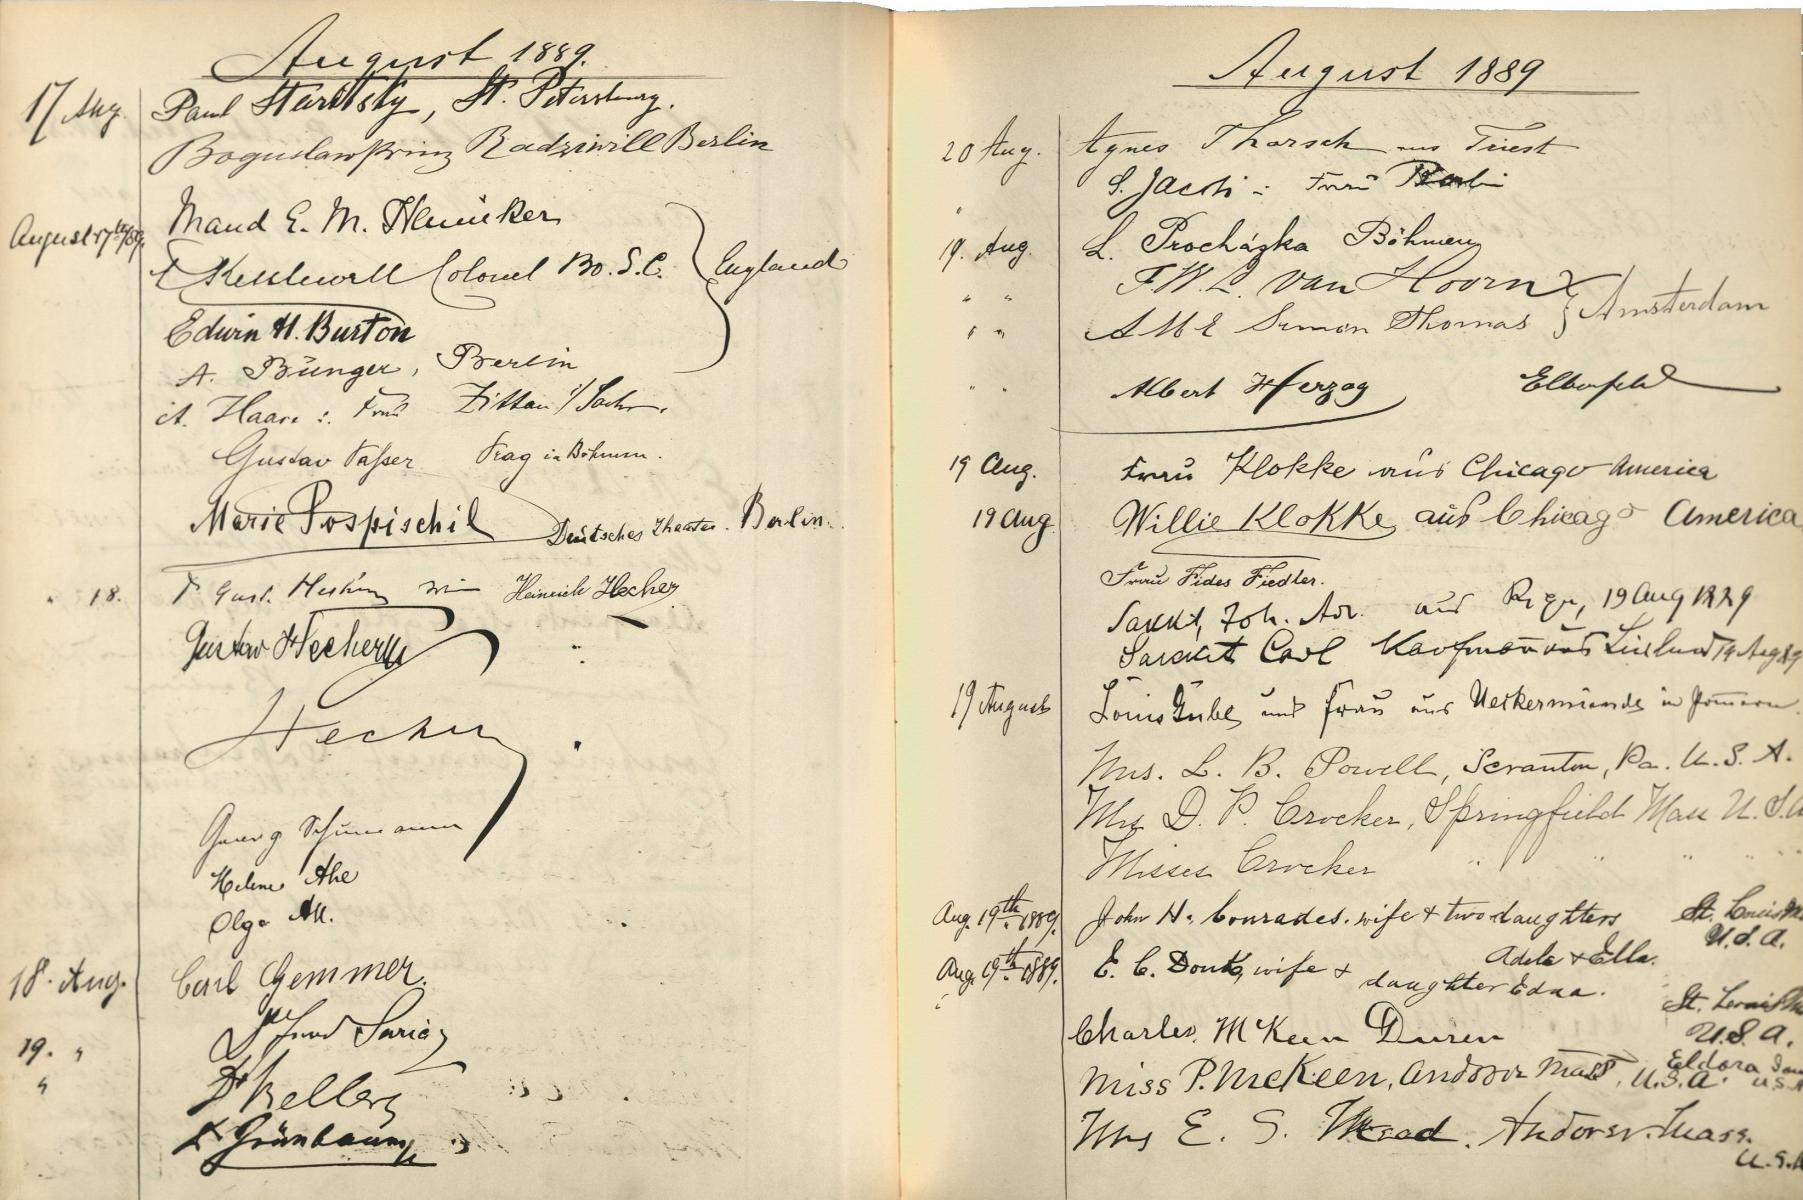 August 1889.
17 Aug. Paul Staritsky, St. Petersburg.
Boguslaw Prinz Radziwill Berlin
Maud E. M. Henniker
August 17th/89. Kettlewell Colonel Bo. S. C. England
Edwin H. Burton
A. Bünger, Berlin
A. Haase u. Frau Zittau i/Sachs.
Gustav Fasser Prag in Böhmen.
Marie Pospischil Deutsches Theater. Berlin.
" 18. F Gust. Heinrich Hecher
Gustav Hecher "
Hecher "
Georg Schumann
Helene Ahe
Olga
18. Aug. Carl Gemmer.
19. "
" Dr Keller
Grünbaum
August 1889
20 Aug. Agnes Tharsch aus Triest
" S. Jacobi u. Frau Berlin
19. Aug. L. Procházka Böhmen
" " F. W. L. van Hoorn
" " Simon Thomas Amsterdam
" " Albert Herzog Elberfeld
19 Aug. Frau Klokke aus Chicago America
19 Aug Willie Klokke aus Chicago America
Frau Fides Fiedler.
Joh. Adr. aus Riga, 19 Aug 1889
Carl Kaufmann aus Livland 19 Aug 89
19 August Louis und Frau aus Ueckermünde in Pommern.
Mrs. L. B. Powell, Scranton, Pa. U. S. A.
Mrs D. P. Crocker, Springfield Mass U. S. A
Misses Crocker " " " " "
Aug. 19th 1889. John H. Conrades. wife & two daughters St. Louis Mo
U. S. A.
Adele & Ella.
Aug. 19th 1889. E. C. Donk, wife & daughter Edna.
St. Louis Mo
U. S. A.
Charles McKeen Duren
Eldora Iowa
U. S. A
Miss P. McKeen, Andover Mass, U. S. A.
Mrs E. S. Mead. Andover. Mass.
U. S. A